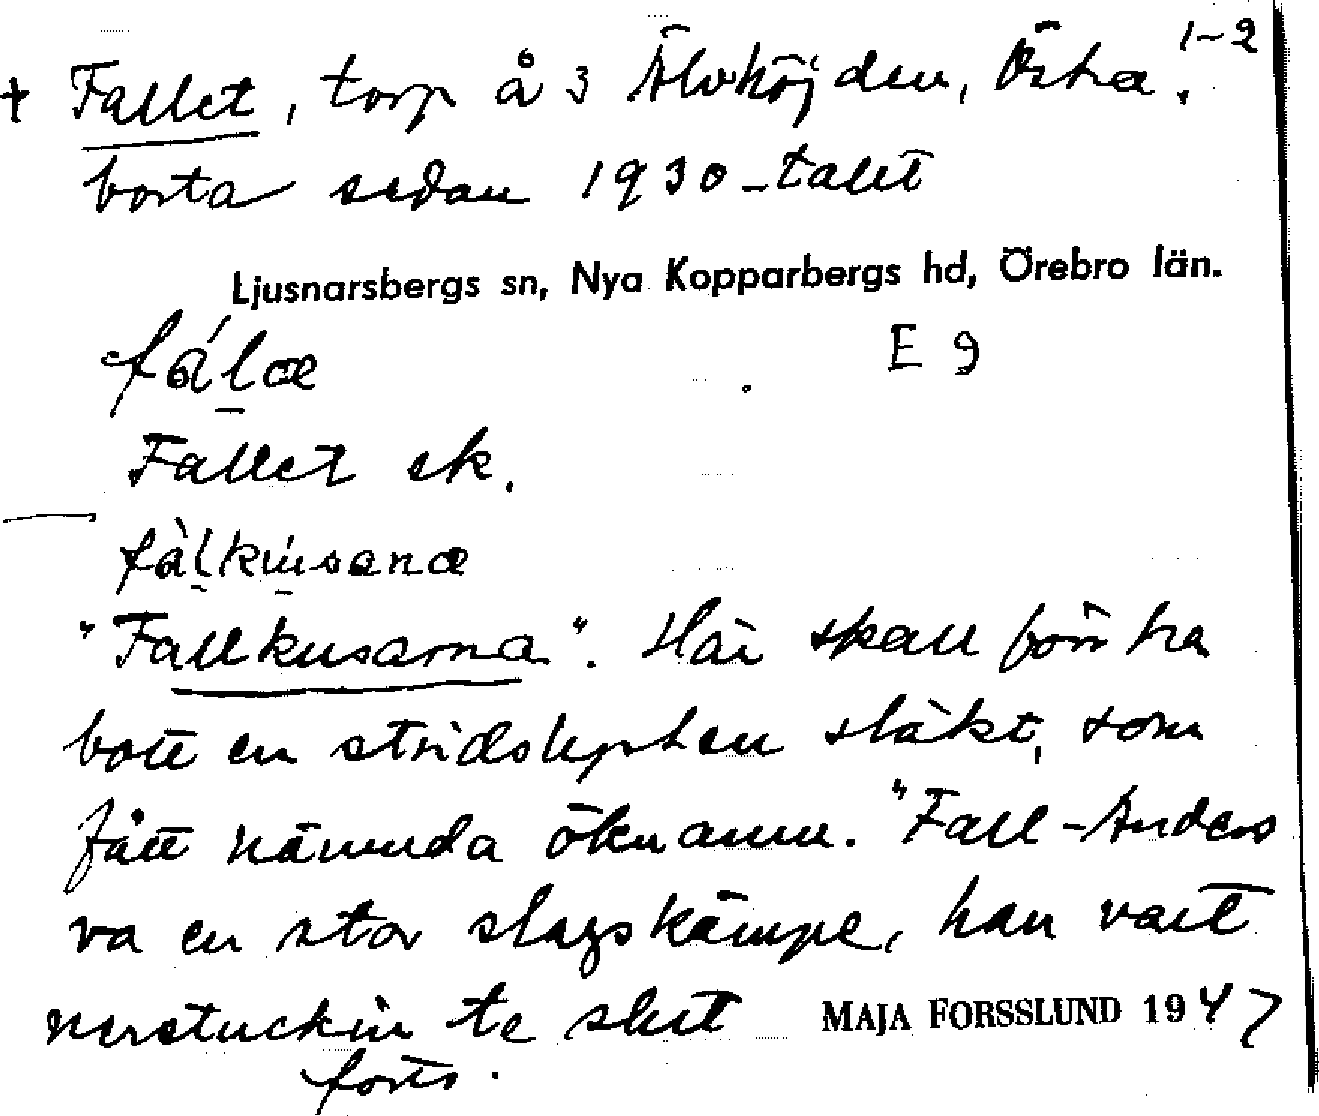 + Fallet, torp å 3 Älvhöjden, Östra. 1-2
borta sedan 1930-talet
Ljusnarsbergs sn, Nya Kopparbergs hd, Örebro län.
fálæ E 9
Fallet ek.
fàlkúsanæ
"Fallkusarna". Här skall förr ha
bott en stridslysten släkt, som
fått nämnda öknamn. "Fall-Anders
va en stor slagskämpe, han vart
nerstuckin te slut MAJA FORSSLUND 1947
forts.